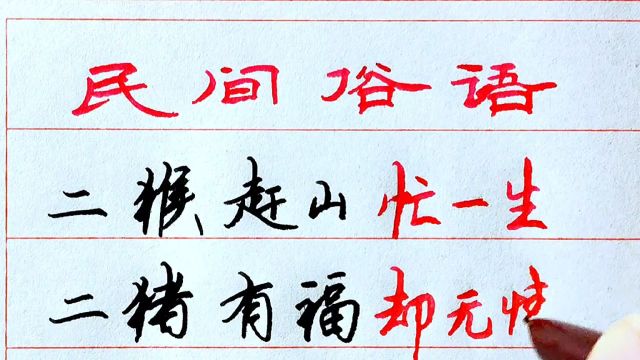 民间俗语
二猴赶山忙一生
二猪有福却无情